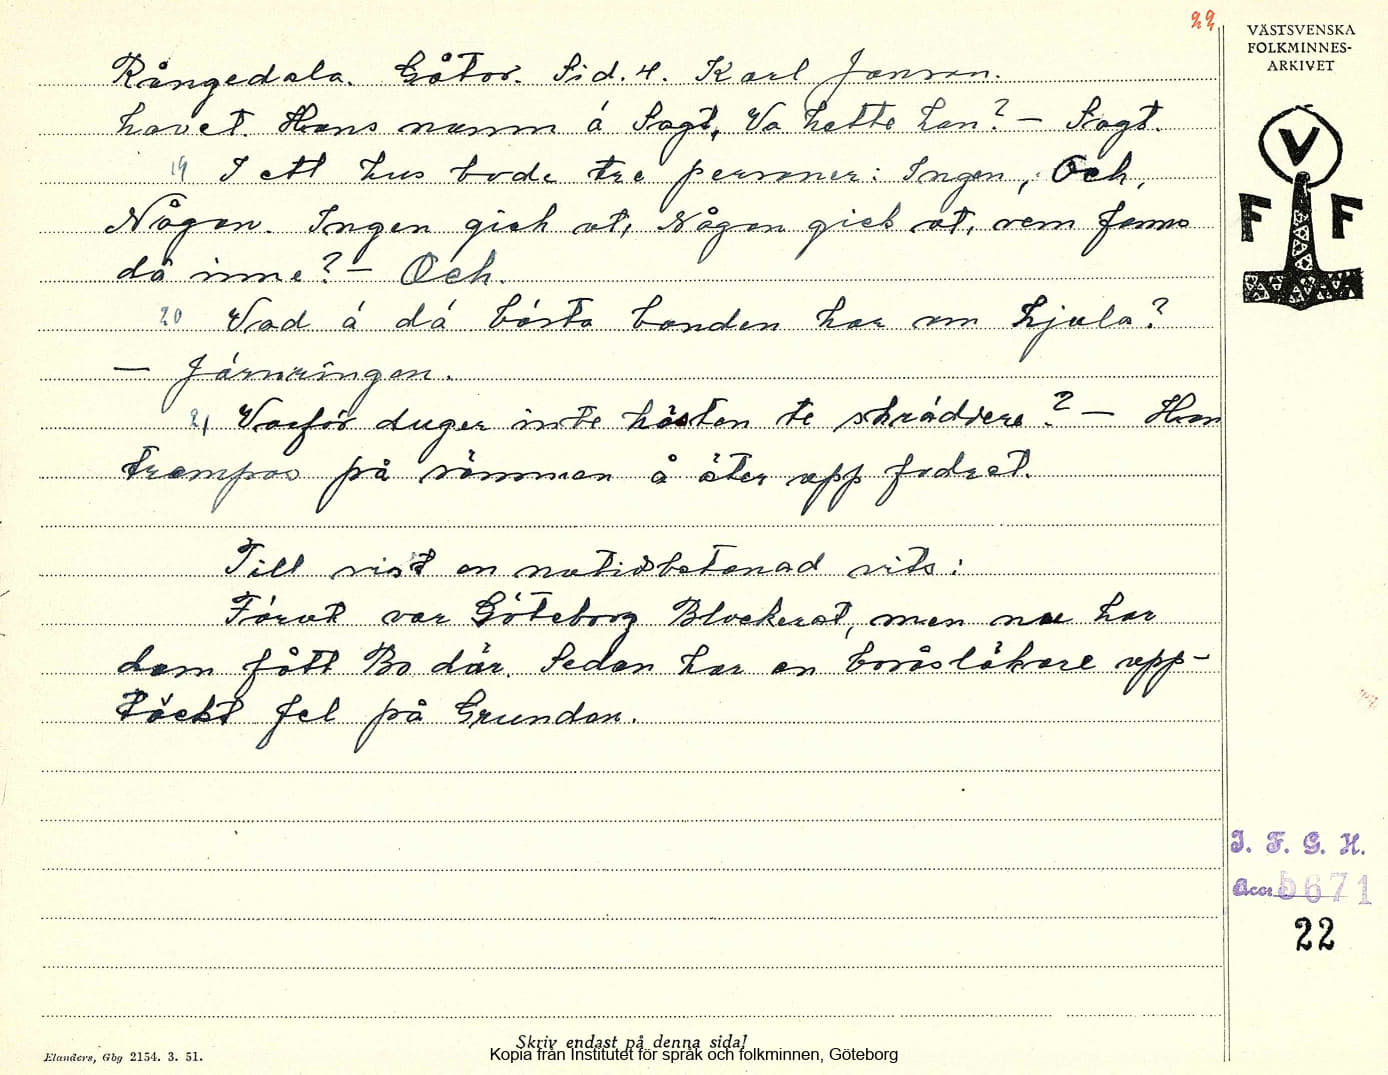 22
VÄSTSVENSKA
FOLKMINNES-
ARKIVET
V
F F
Rångedala. Gåtor. Sid. 4. Karl Jonson.
havet. Hans namn ä Sagt, Va hette han? — Sagt.
19 I ett hus bodde tre personer: Ingen, Och,
Någon. Ingen gick ut, Någon gick ut, vem fanns
då inne? — Och.
20 Vad ä dä bästa bonden har om hjula?
— Järnringen.
21 Varför duger inte hästen te skräddere? — Han
trampar på sömmen å äter upp fodret.
Till sist en nutidsbetonad vits:
Förut var Göteborg Blockerat, men nu har
dom fått Bo där. Sedan har en boråsläkare upp-
täckt fel på Grunden.
I. F. G. H.
Acc. 5671
22
Skriv endast på denna sida!
Elanders, Gbg 2154. 3. 51.
Kopia från Institutet för språk och folkminnen, Göteborg